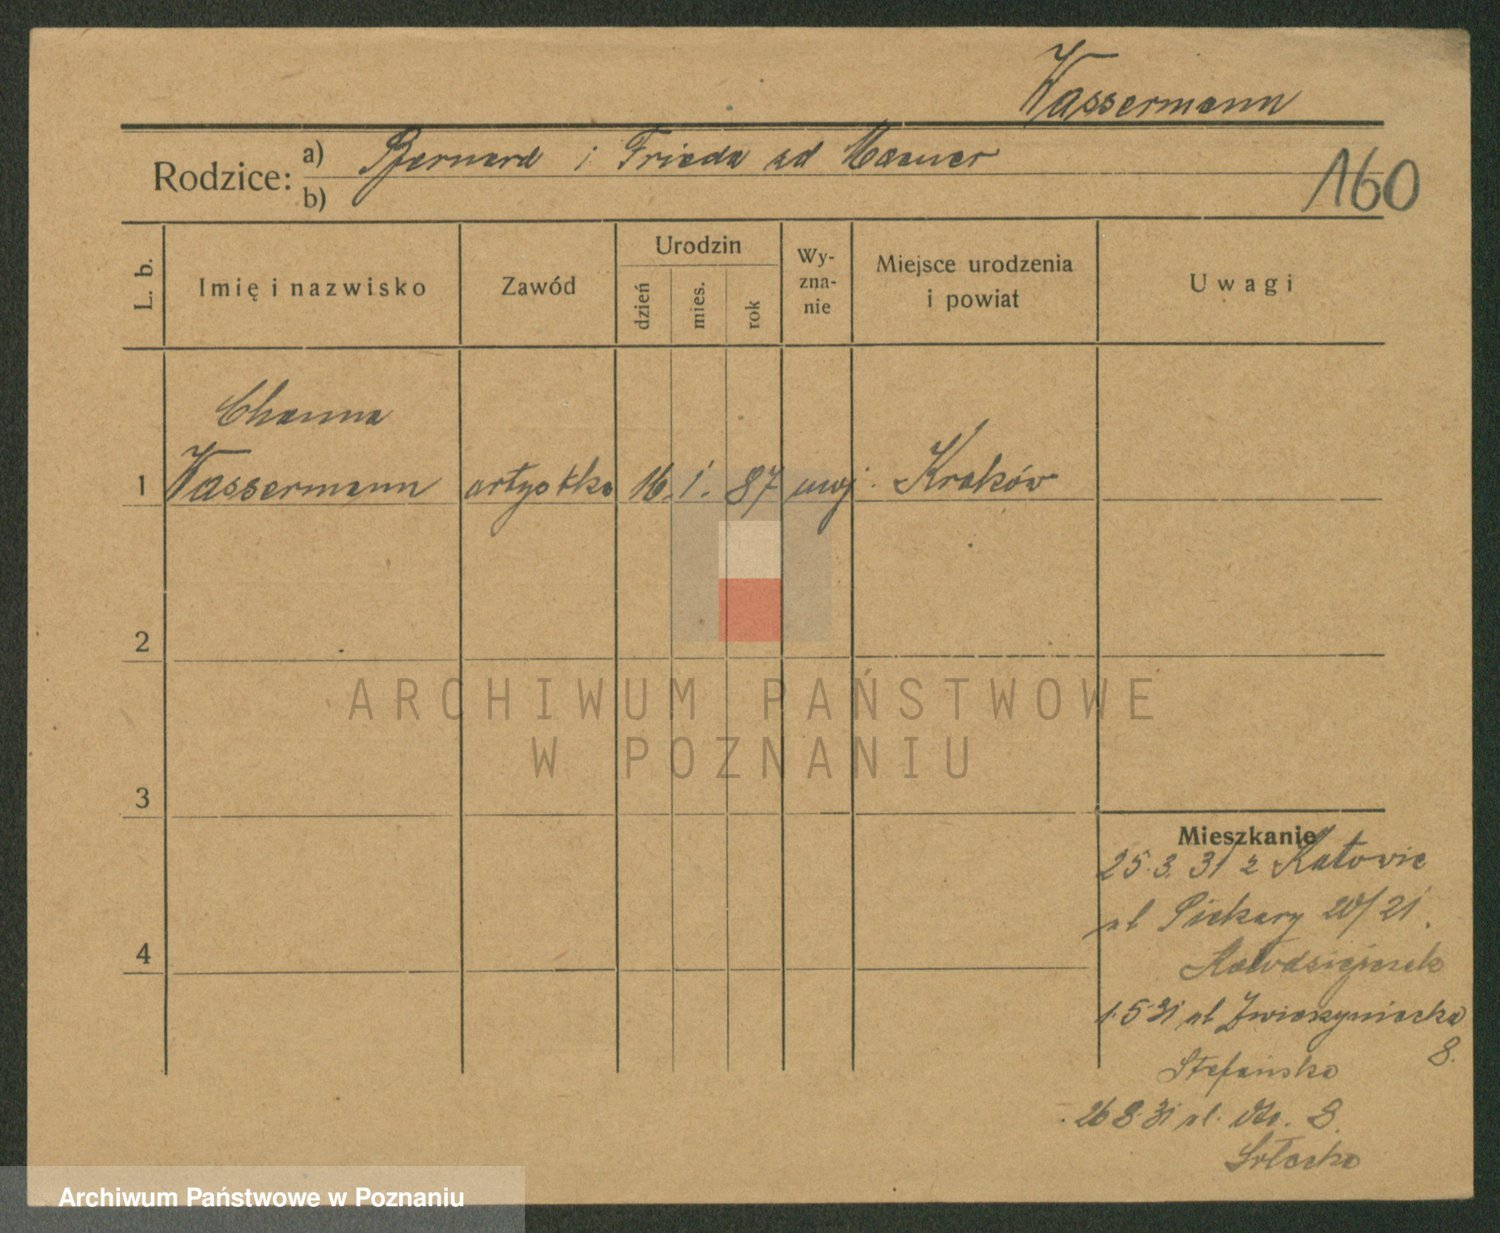 Wassermann
Rodzice: a) Bernard i Frieda zd
b)
160
L. b.
Imię i nazwisko
Zawód
Urodzin
dzień
mies.
rok
Wy-
zna-
nie
Miejsce urodzenia
i powiat
Uwagi
Channa
1 Wassermann artystka 16. 1. 87 Kraków
2
ARCHIWUM PAŃSTWOWE
W POZNANIU
3
4
Mieszkanie
25.3.31 z Katowic
ul Piekary 20/21.
1.5 31 ul Zwierzyniecka
8.
Stefańska
26 8 31 ul. 8.
Archiwum Państwowe w Poznaniu